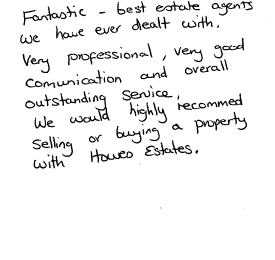 Fantastic - best estate agents
we have ever dealt with.
Very professional, very good
comunication and overall
outstanding service.
We would highly recommed
selling or buying a property
with Howes Estates.